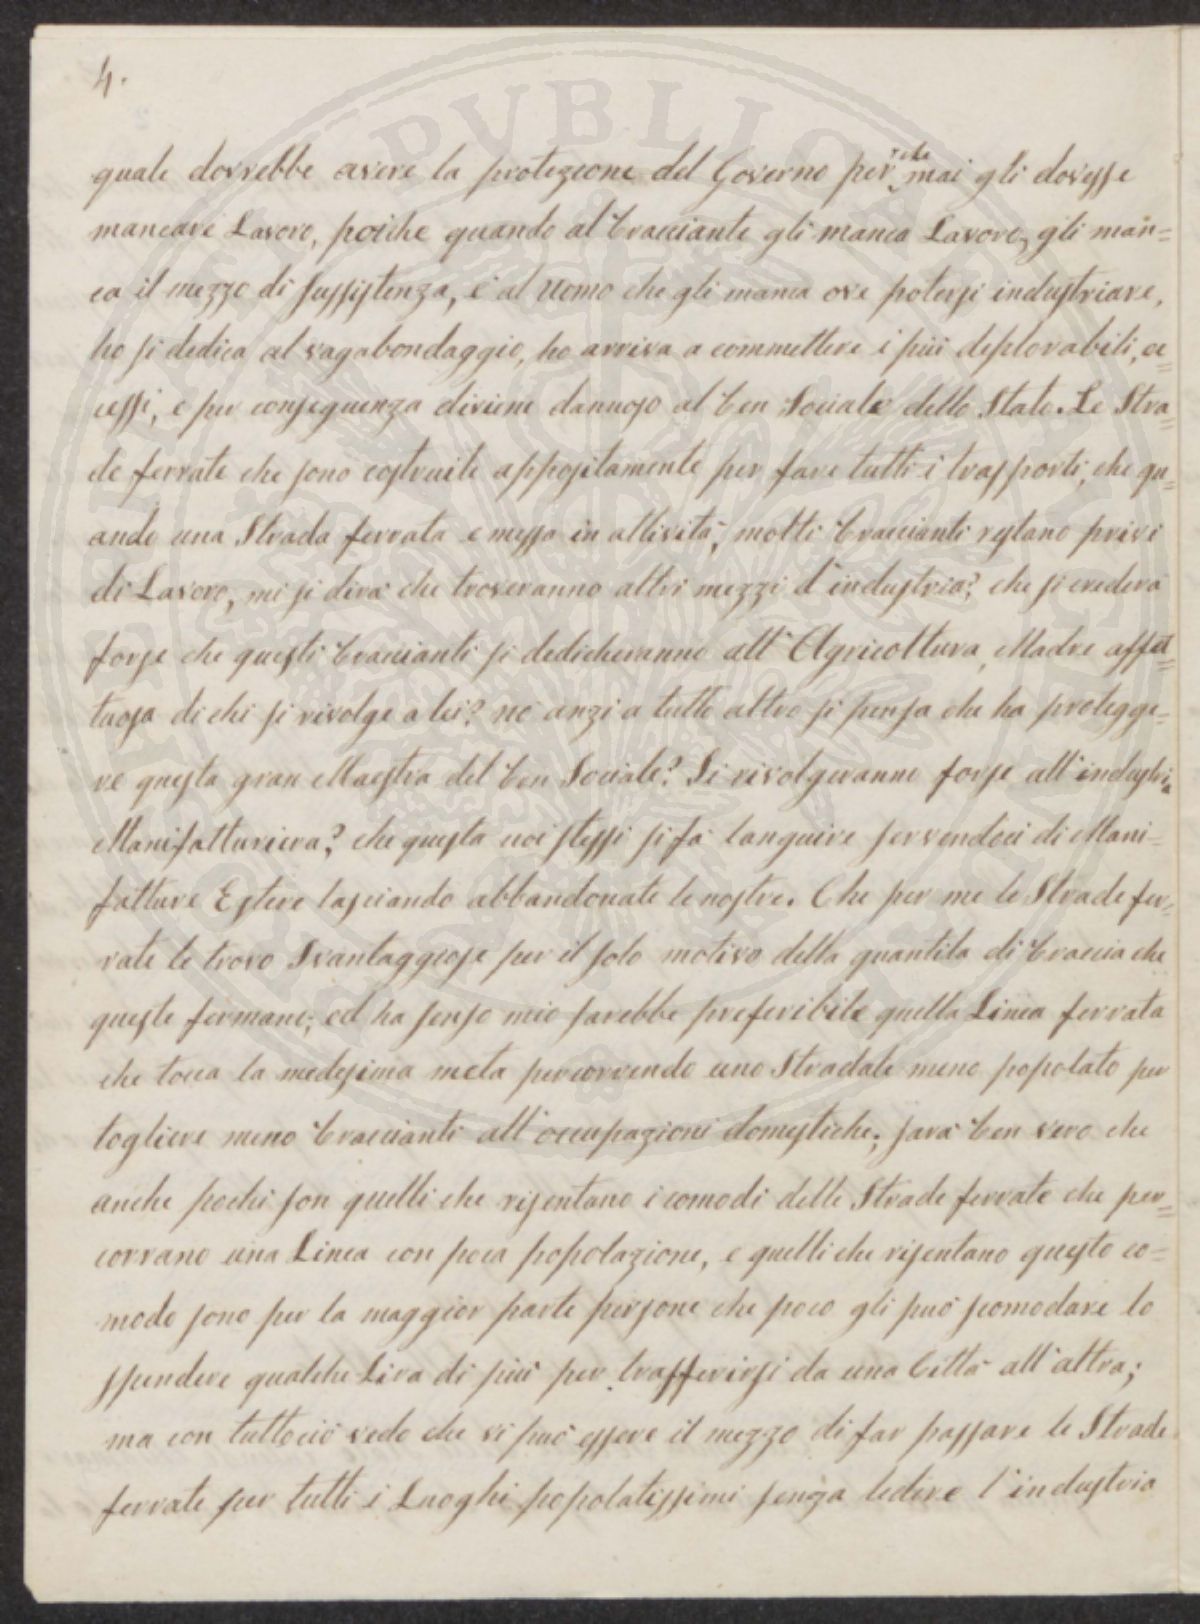 4.
quale dovrebbe avere la protezione del Governo per che mai gli dovesse
mancare Lavoro, poiche quando al bracciante gli manca Lavoro, gli man=
ca il mezzo di sussistenza, e al Uomo che gli manca ove potersi industriare,
ho si dedica al vagabondaggio, ho arriva a commettere i più deplorabili, ec=
cessi, e per conseguenza diviene dannoso al ben Sociale dello Stato. Le Stra=
de ferrate che sono costruite appositamente per fare tutti i trasporti, che qu=
ando una Strada ferrata e messa in attività, molti braccianti restano privi
di Lavoro, mi si dirà che troveranno altri mezzi d'industria? che si crederà
forse che questi braccianti si dedicheranno all'Agricoltura, Madre affet=
tuosa di chi si rivolge a lei? nò anzi a tutto altro si pensa che ha protegge=
re questa gran Maestra del ben Sociale? Si rivolgeranno forse all'industria
Manifatturiera? che questa noi stessi si fà languire servendoci di Mani=
fatture Estere lasciando abbandonate le nostre. Che per me le Strade fer=
rate le trovo Svantaggiose per il solo motivo della quantita di braccia che
queste fermano; ed ha senso mio sarebbe preferibile quella Linea ferrata
che tocca la medesima meta percorrendo uno Stradale meno popolato per
togliere meno braccianti all'occupazioni domestiche; sarà ben vero che
anche pochi son quelli che risentano i comodi delle Strade ferrate che per=
corrano una Linea con poca popolazione, e quelli che risentano questo co=
modo sono per la maggior parte persone che poco gli può scomodare lo
spendere qualche Lira di più per trasferirsi da una Città all'altra;
ma con tuttociò vedo che vi può essere il mezzo di far passare le Strade
ferrate per tutti i Luoghi popolatissimi senza ledere l'industria